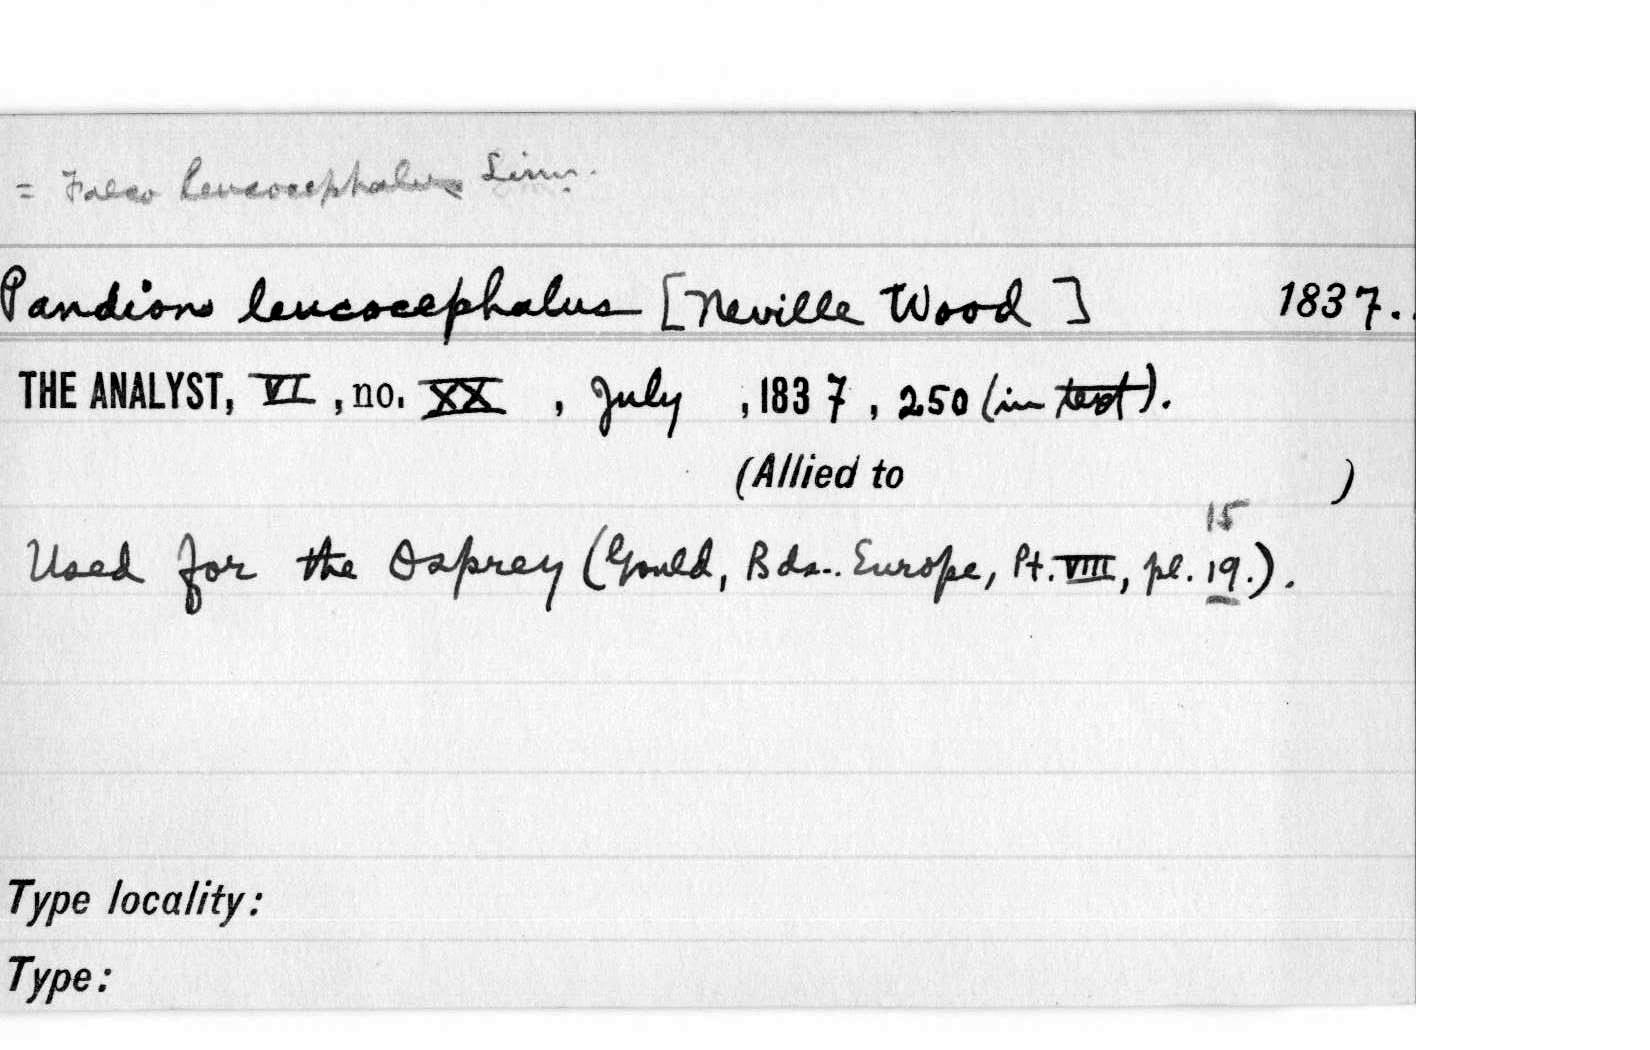 = Falco leucocephalus Linn.
Pandion leucocephalus [Neville Wood] 1837.
THE ANALYST, VI, no. XX, July, 1837, 250 (in text).
(Allied to )
15
Used for the Osprey (Gould, Bds. Europe, Pt. VIII, pl. 19.).
Type locality:
Type: